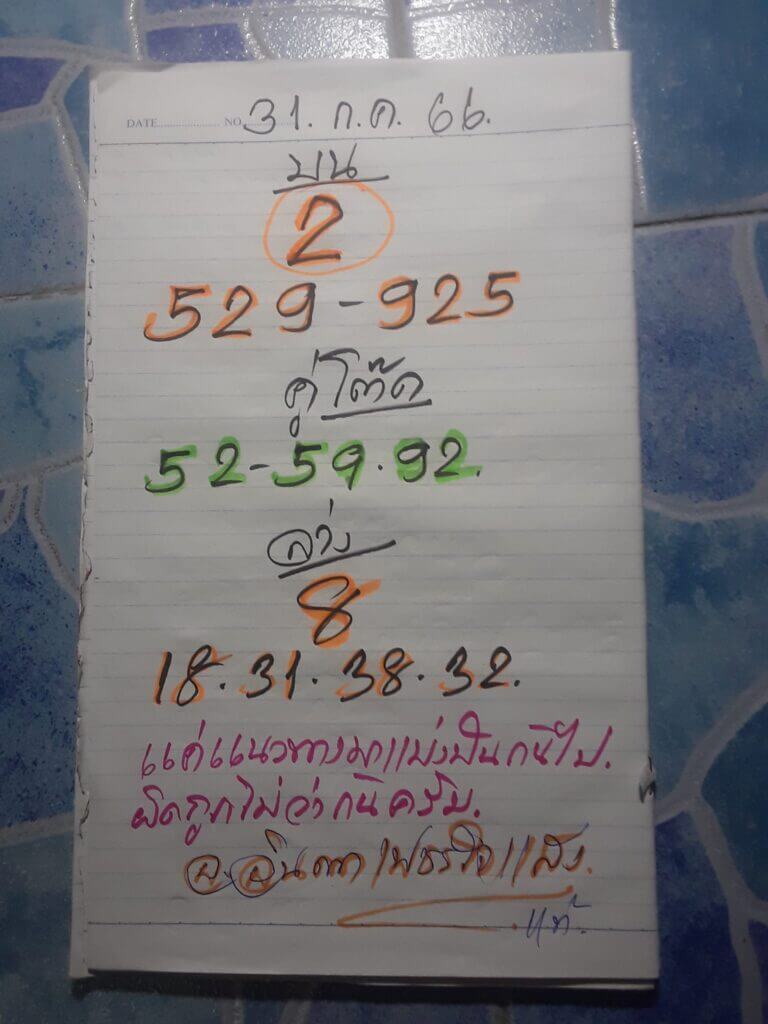 DATE.................... NO. 31. ก.ค. 66.
บน
2
529-925
คู่โต๊ด
52-59.92.
ล่าง
8
18.31.38.32.
แค่แนวทางมาแบ่งปันกันไป.
ผิดถูกไม่ว่ากันครับ.
อ.อินตา เพชรใจแสง.
แท้.